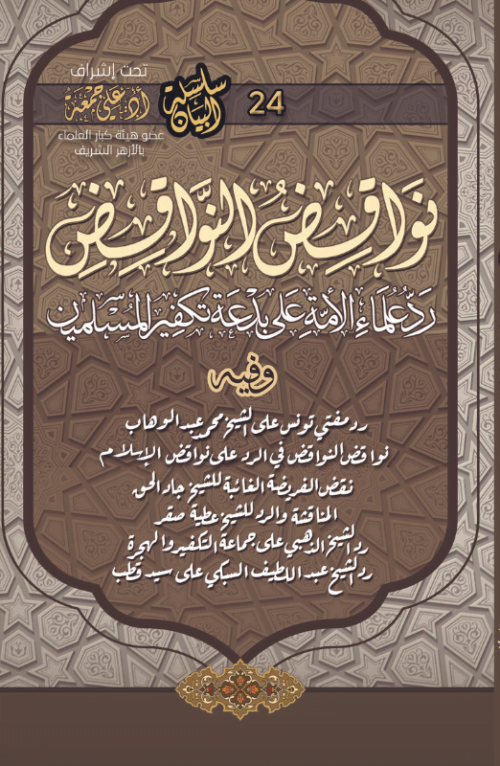 تحت إشراف
أ.د. علي جمعة
عضو هيئة كبار العلماء
بالأزهر الشريف
سلسلة
البيان
24
نَوَاقِضُ النَّوَاقِضِ
رَدُّ عُلَمَاءِ الأُمَّةِ عَلَى بِدْعَةِ تَكْفِيرِ المُسْلِمِين
وفيه
رد مفتي تونس على الشيخ محمد عبد الوهاب
نواقض النواقض في الرد على نواقض الإسلام
نقض الفريضة الغائبة للشيخ جاد الحق
المناقشة والرد للشيخ عطية صقر
رد الشيخ الذهبي على جماعة التكفير والهجرة
رد الشيخ عبد اللطيف السبكي على سيد قطب